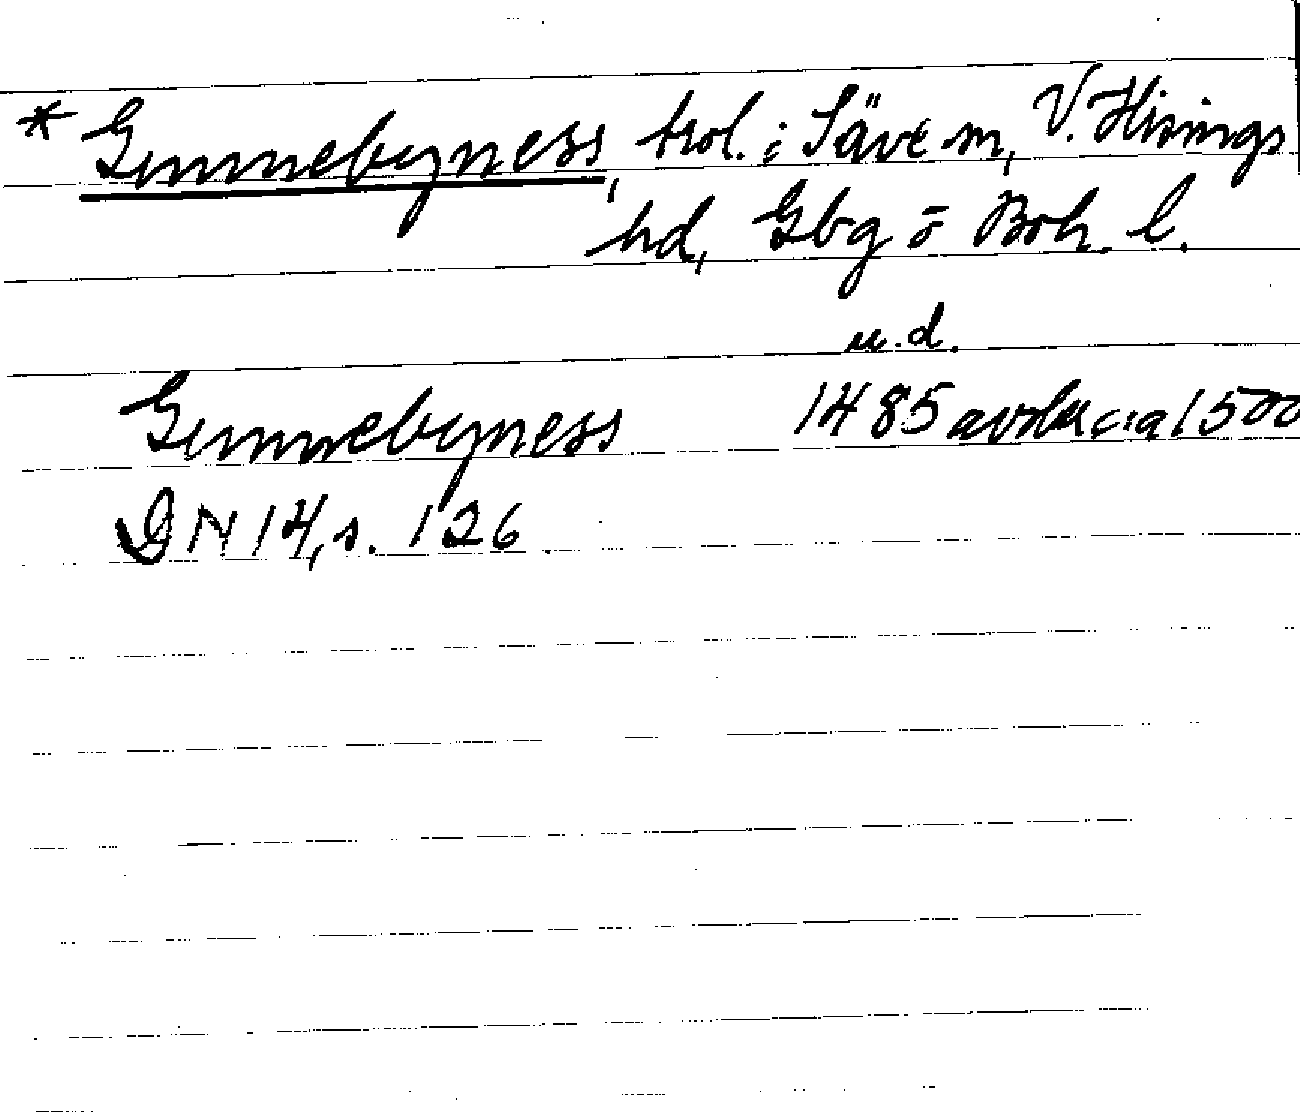 * Gunnebyness, trol. i Säve sn, V. Hisings
hd, Gbg o Boh. l.
u.d.
Gunnebyness 1485 avskr c:a 1500
DN 14, s. 126